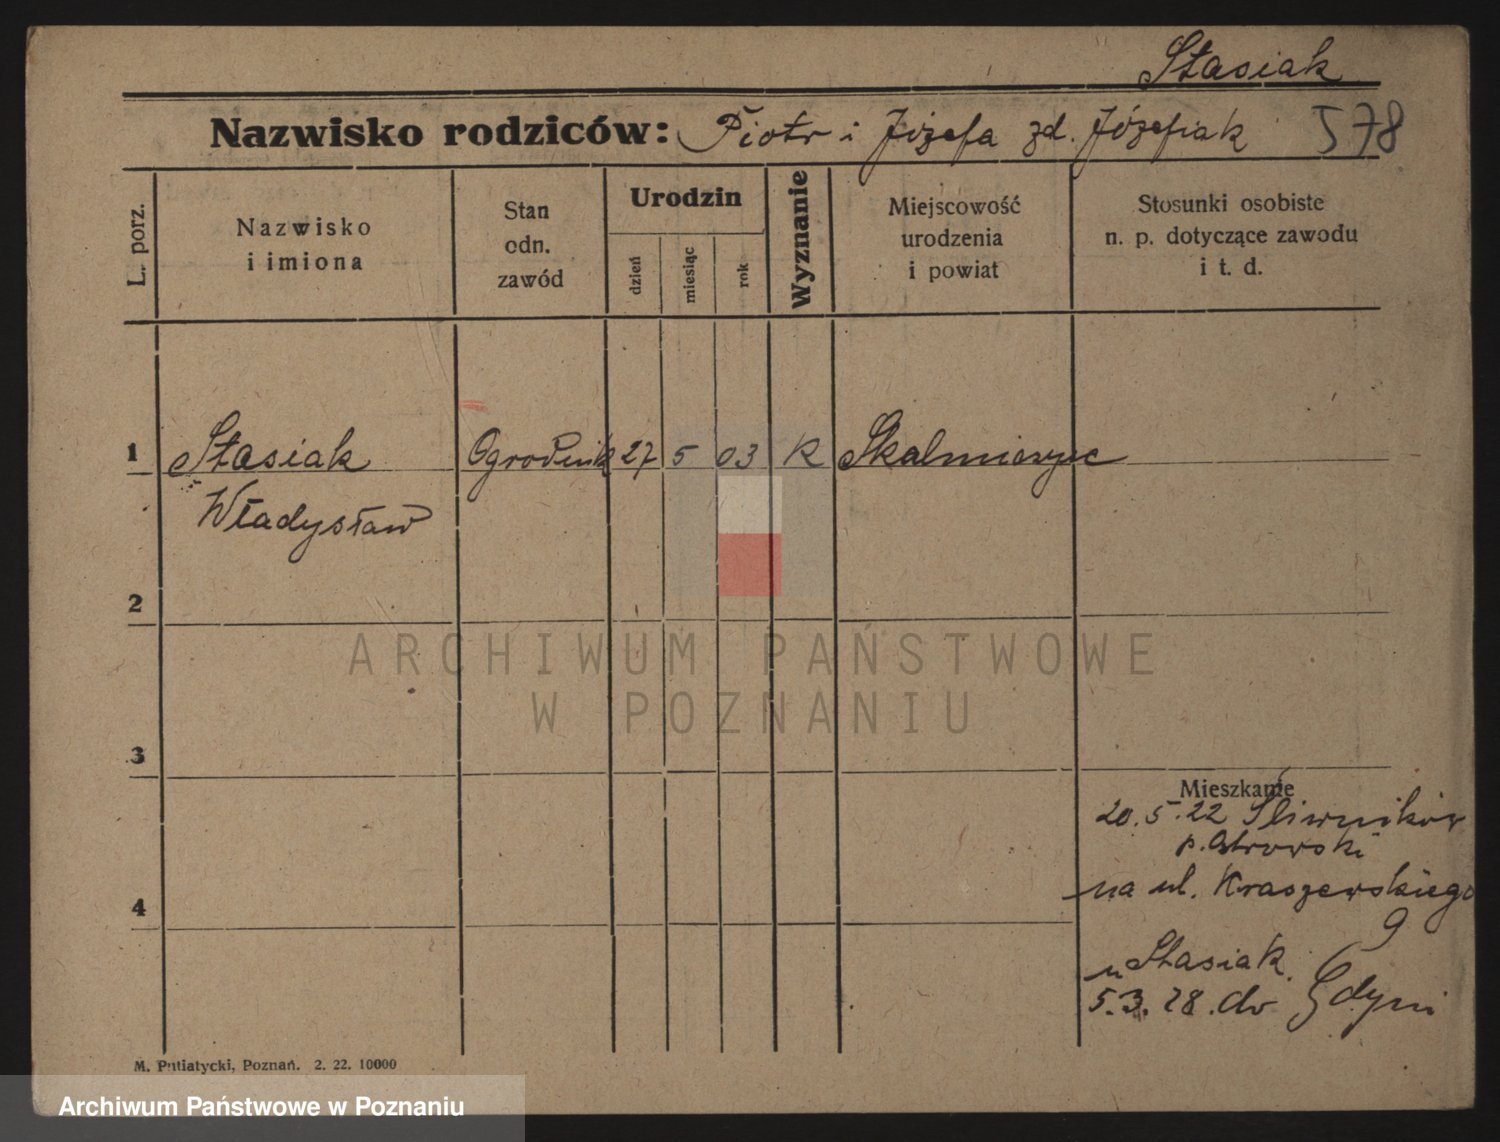 Stasiak
Nazwisko rodziców: Piotr i Józefa zd. Józefiak 578
L. porz.
Nazwisko
i imiona
Stan
odn.
zawód
Urodzin
dzień
miesiąc
rok
Wyznanie
Miejscowość
urodzenia
i powiat
Stosunki osobiste
n. p. dotyczące zawodu
i t. d.
1 Stasiak Ogrodnik 27 5 03 K Skalmierzyce
Władysław
2
ARCHIWUM PAŃSTWOWE
W POZNANIU
3
Mieszkanie
20.5.22 Śliwników
p. Ostrowski
na ul. Kraszewskiego
9
4
u Stasiak
5.3.28. do Gdyni
M. Putiatycki, Poznań. 2. 22. 10000
Archiwum Państwowe w Poznaniu